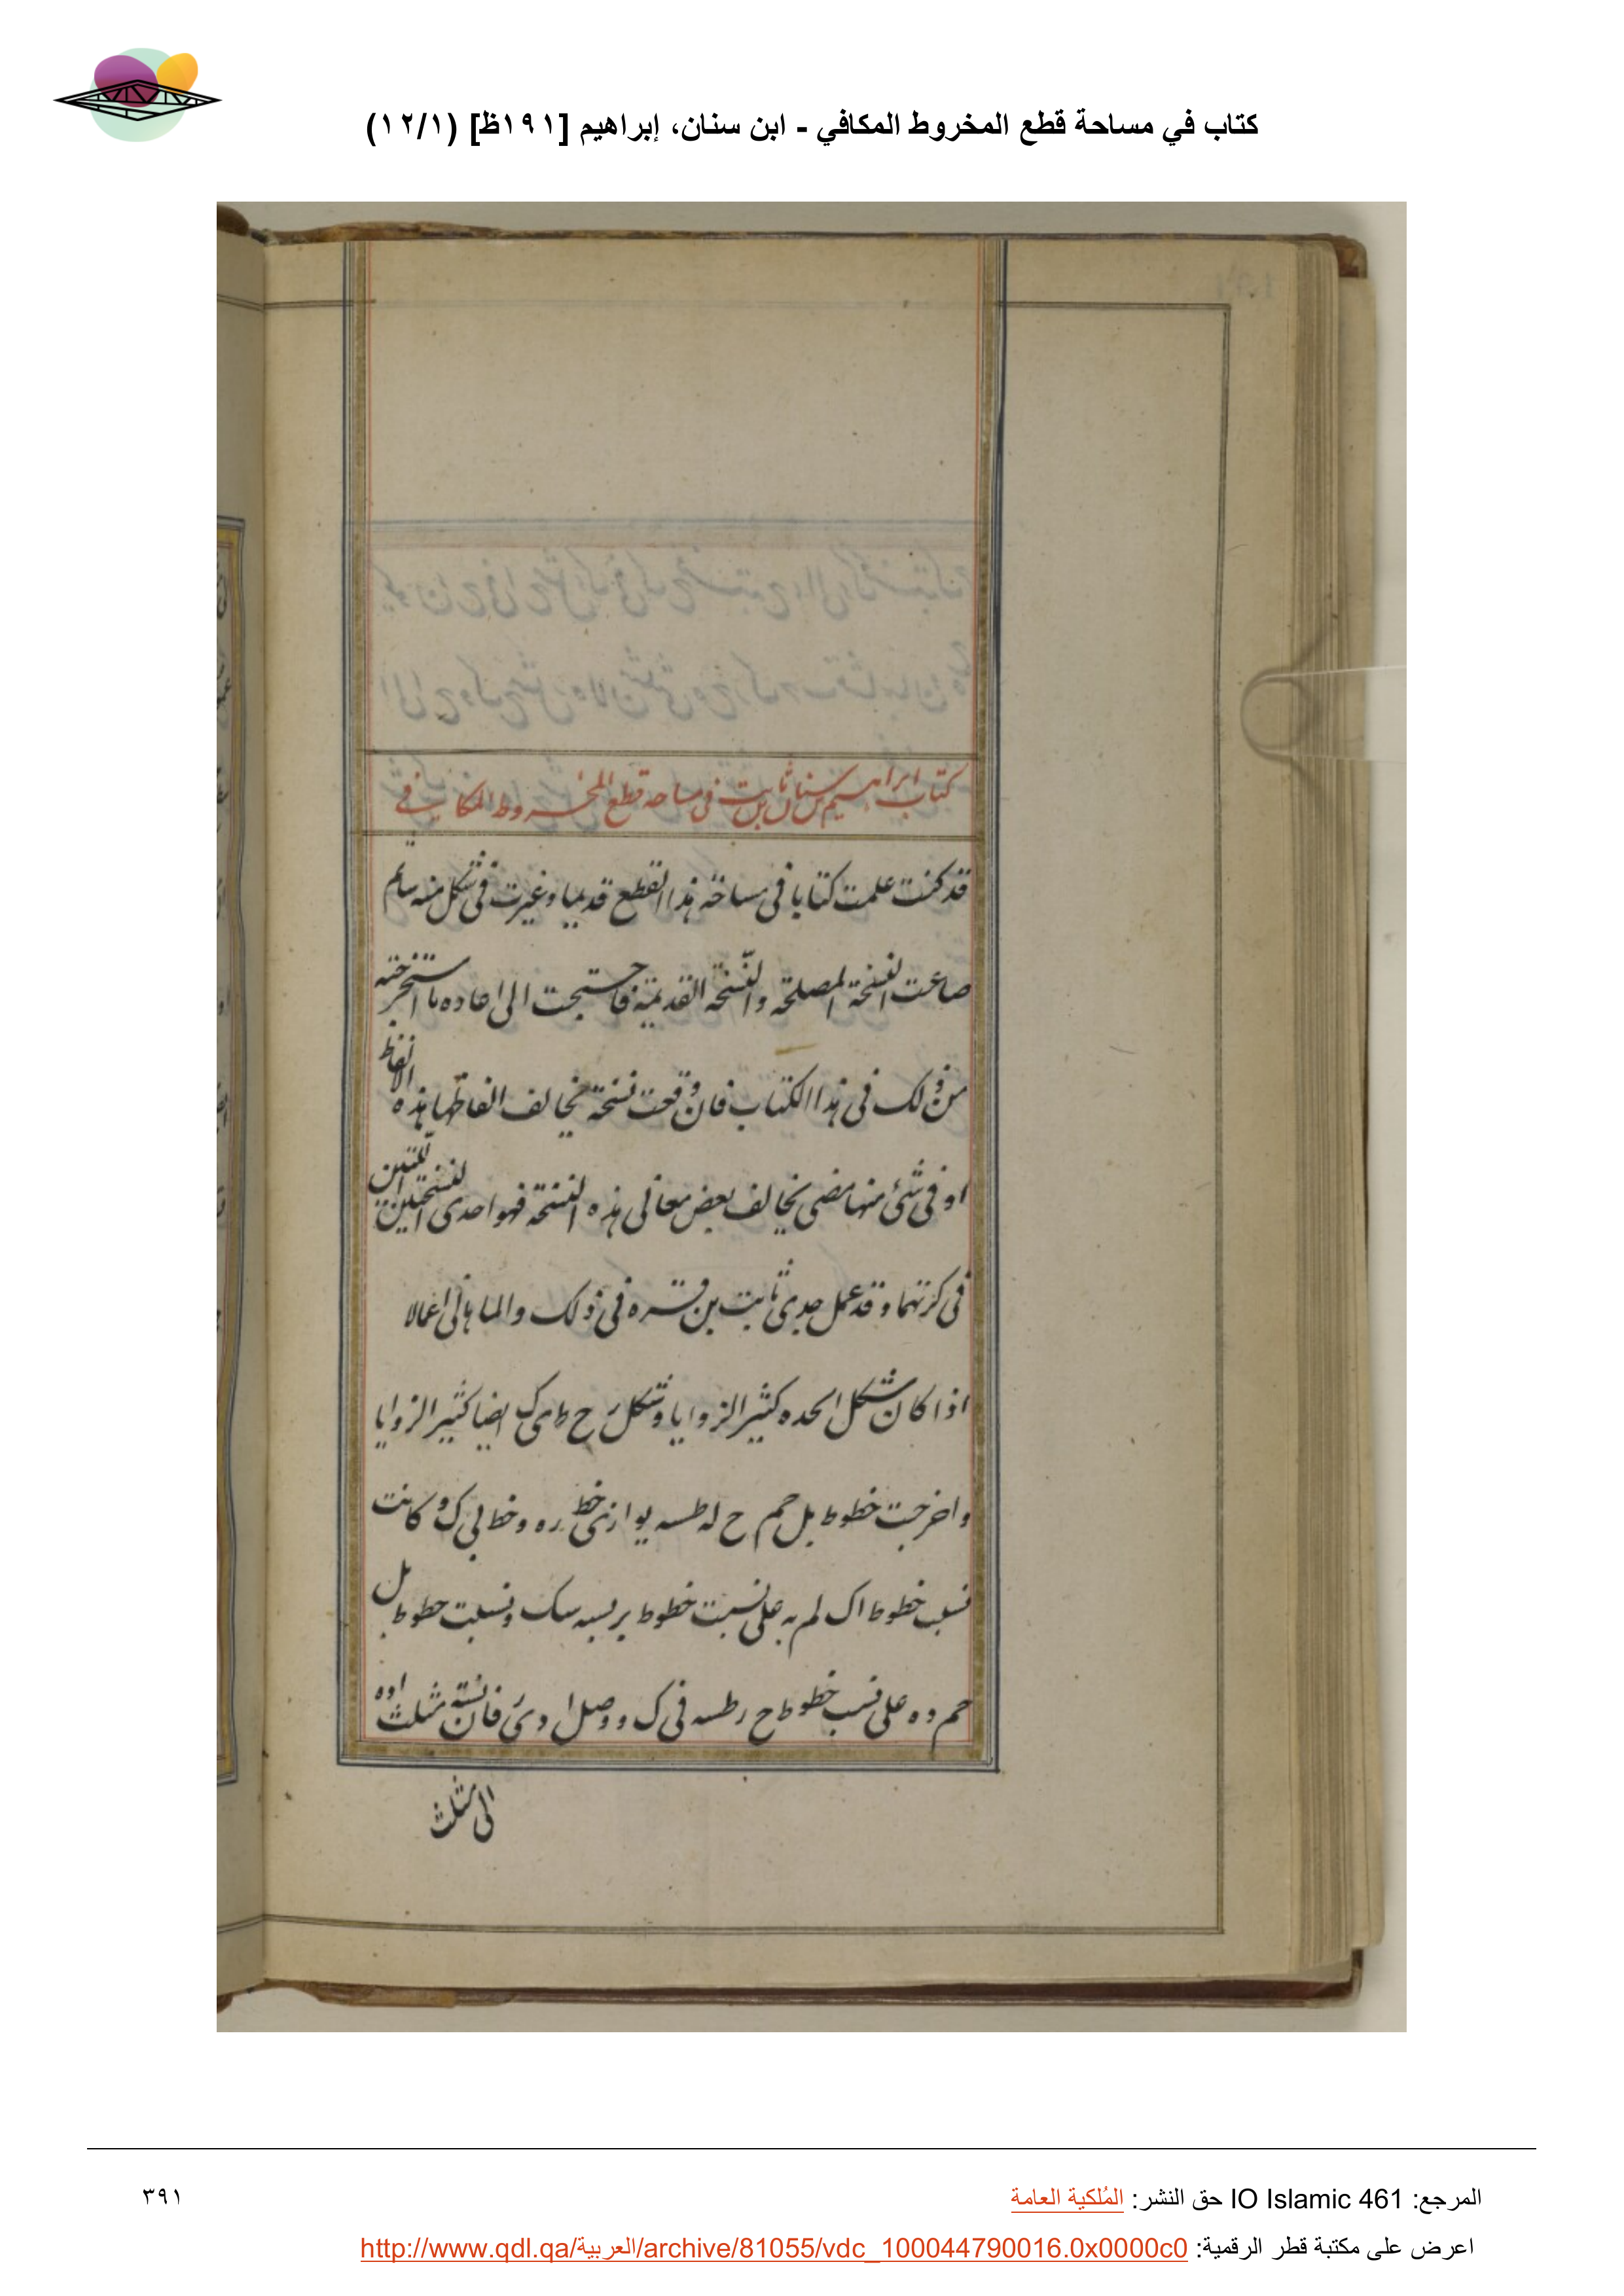 كتاب في مساحة قطع المخروط المكافي - ابن سنان، إبراهيم [١٩١ظ] (١٢/١)
كتاب ابراهيم بن سنان بن ثابت في مساحة قطع المخروط المكافي
قد كنت علمت كتابا في مساحة هذا القطع قديما وغيرت في شكل منه ساثم
ضاعت النسخة المصلحة والنسخة القديمة فاحتيجت الى اعاده ما استخرجته
من ذلك في هذا الكتاب فان وقعت نسخة تخالف الفاظها هذه الالفاظ
او في شئ منها مضى يخالف بعض معانى هذه النسخة فهو احدى النسختين اللتين
ذكرتهما وقد عمل جدى ثابت بن قره في ذلك والماهانى اعمالا
اذا كان شكل ابحده كثير الزوايا وشكل ز ح ط ى ك ايضا كثير الزوايا
واخرجت خطوط بل حم ح له طسه يوازى خط ره وخطا بى ك و كانت
نسب خطوط اك لم به على نسبت خطوط بر بسه سك ونسبت خطوط بل
حم ده على نسب خطوط ح ر طسه فى ك ووصل ا د ى فان نسبة مثلث اده
الى مثلث
المرجع: IO Islamic 461 حق النشر: المُلكية العامة
٣٩١
اعرض على مكتبة قطر الرقمية: http://www.qdl.qa/العربية/archive/81055/vdc_100044790016.0x0000c0